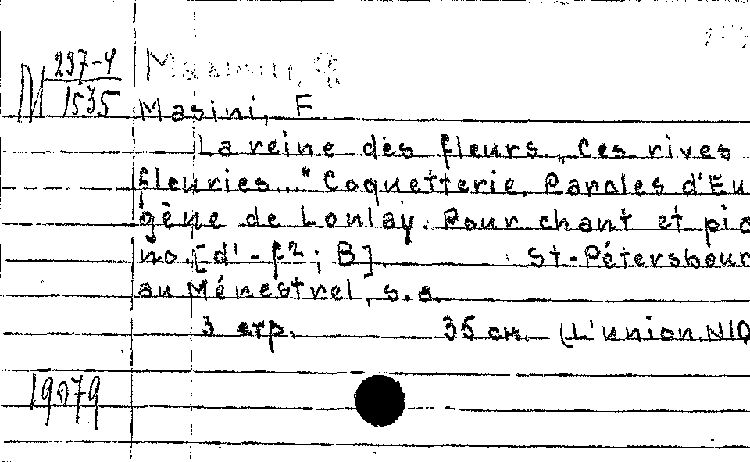 M 237-4
1535
Masini, F.
La reine des fleurs. „Ces rives
fleuries..." Coquetterie. Paroles d'Eu
gène de Lonlay. Pour chant et pia
no. [d'-f²; B]. St-Pétersbour
au Ménestrel, s.a.
3 стр. 35 см. (L'union.N10
19079